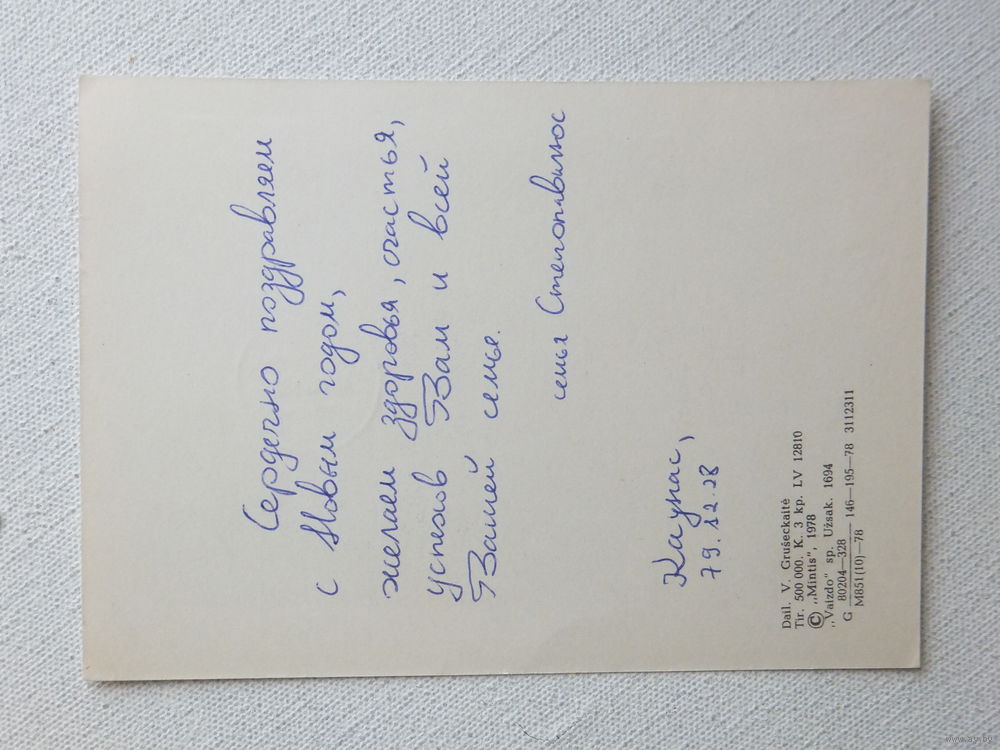 Сердечно поздравляем
с Новым годом,
желаем здоровья, счастья,
успехов Вам и всей
Вашей семье.
семья
Каунас,
79.12.28
Dail. V. Grušeckaitė
Tir. 500 000. K. 3 kp. LV 12810
© „Mintis", 1978
„Vaizdo" sp. Užsak. 1694
G 80204—328 / M851(10)—78 146—195—78 3112311
www.ay.by